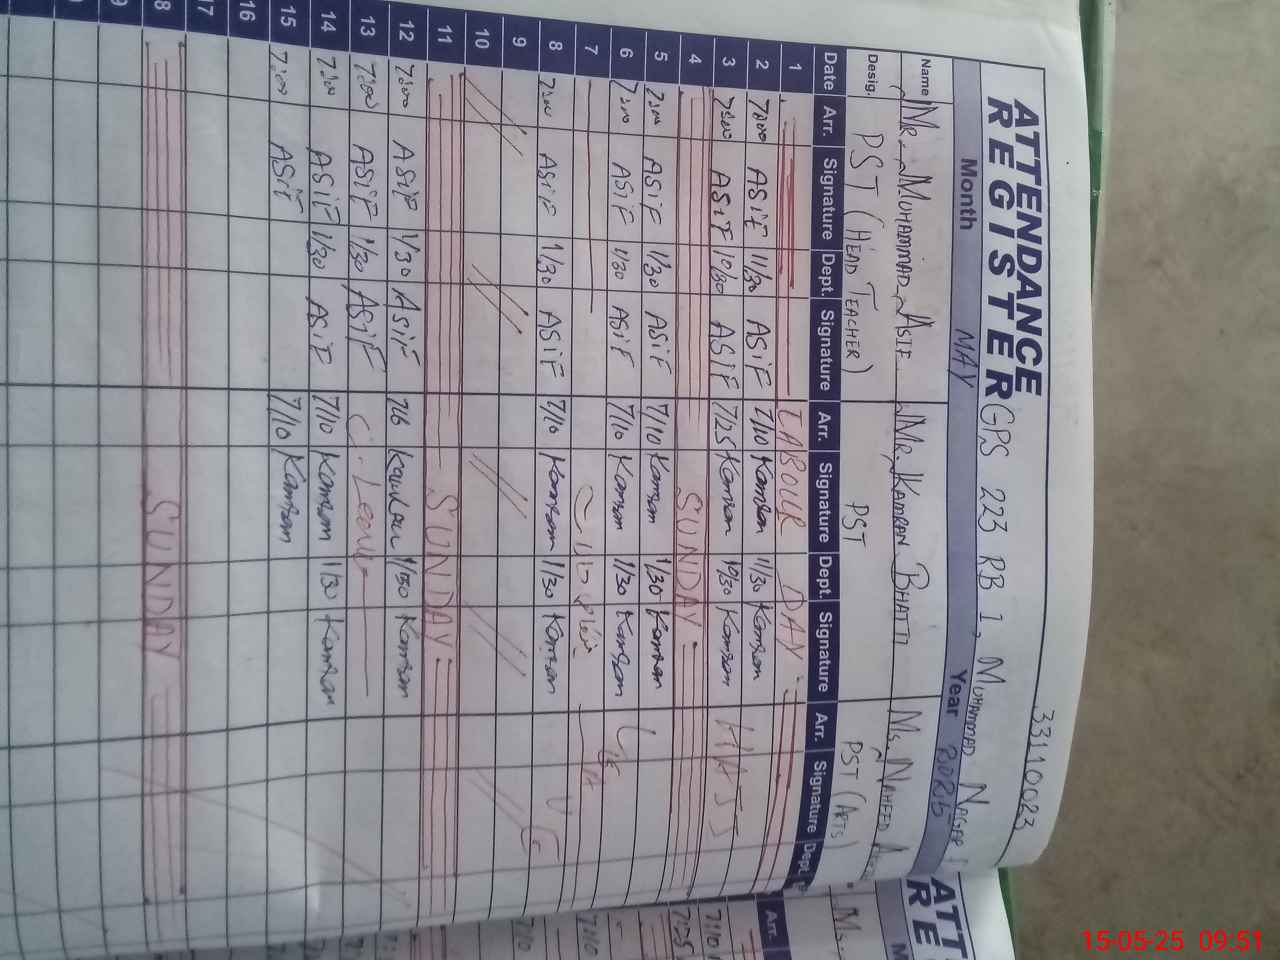 33110023
ATTENDANCE
REGISTER GPS 223 RB 1, MUHAMMAD NAGAR
Month MAY Year 2025
Name Mr. MUHAMMAD ASIF Mr. KAMRAN BHATTI Ms. NAHEED
Desig. PST (HEAD TEACHER) PST PST (ARTS)
Date Arr. Signature Dept. Signature Arr. Signature Dept. Signature Arr. Signature Dept.
1 LABOUR DAY
2 7:00 ASiF 11/30 ASiF 7/10 Kamran 11/30 Kamran
3 7:00 ASiF 10/30 ASiF 7/25 Kamran 10/30 Kamran
4 SUNDAY
5 7:00 ASiF 1/30 ASiF 7/10 Kamran 1/30 Kamran
6 7:00 ASiF 1/30 ASiF 7/10 Kamran 1/30 Kamran
7
8 7:00 ASiF 1/30 ASiF 7/10 Kamran 1/30 Kamran
9
10
11 SUNDAY
12 7:00 ASiF 1/30 ASiF 7/6 Kamran 1/30 Kamran
13 7:00 ASiF 1/30 ASiF C. Leave
14 7:00 ASiF 1/30 ASiF 7/10 Kamran 1/30 Kamran
15 7:00 ASiF 7/10 Kamran
16
17
18 SUNDAY
ATT
RE
M
Ms.
Arr.
7:10
7:25
7:10
7/10
15-05-25 09:51